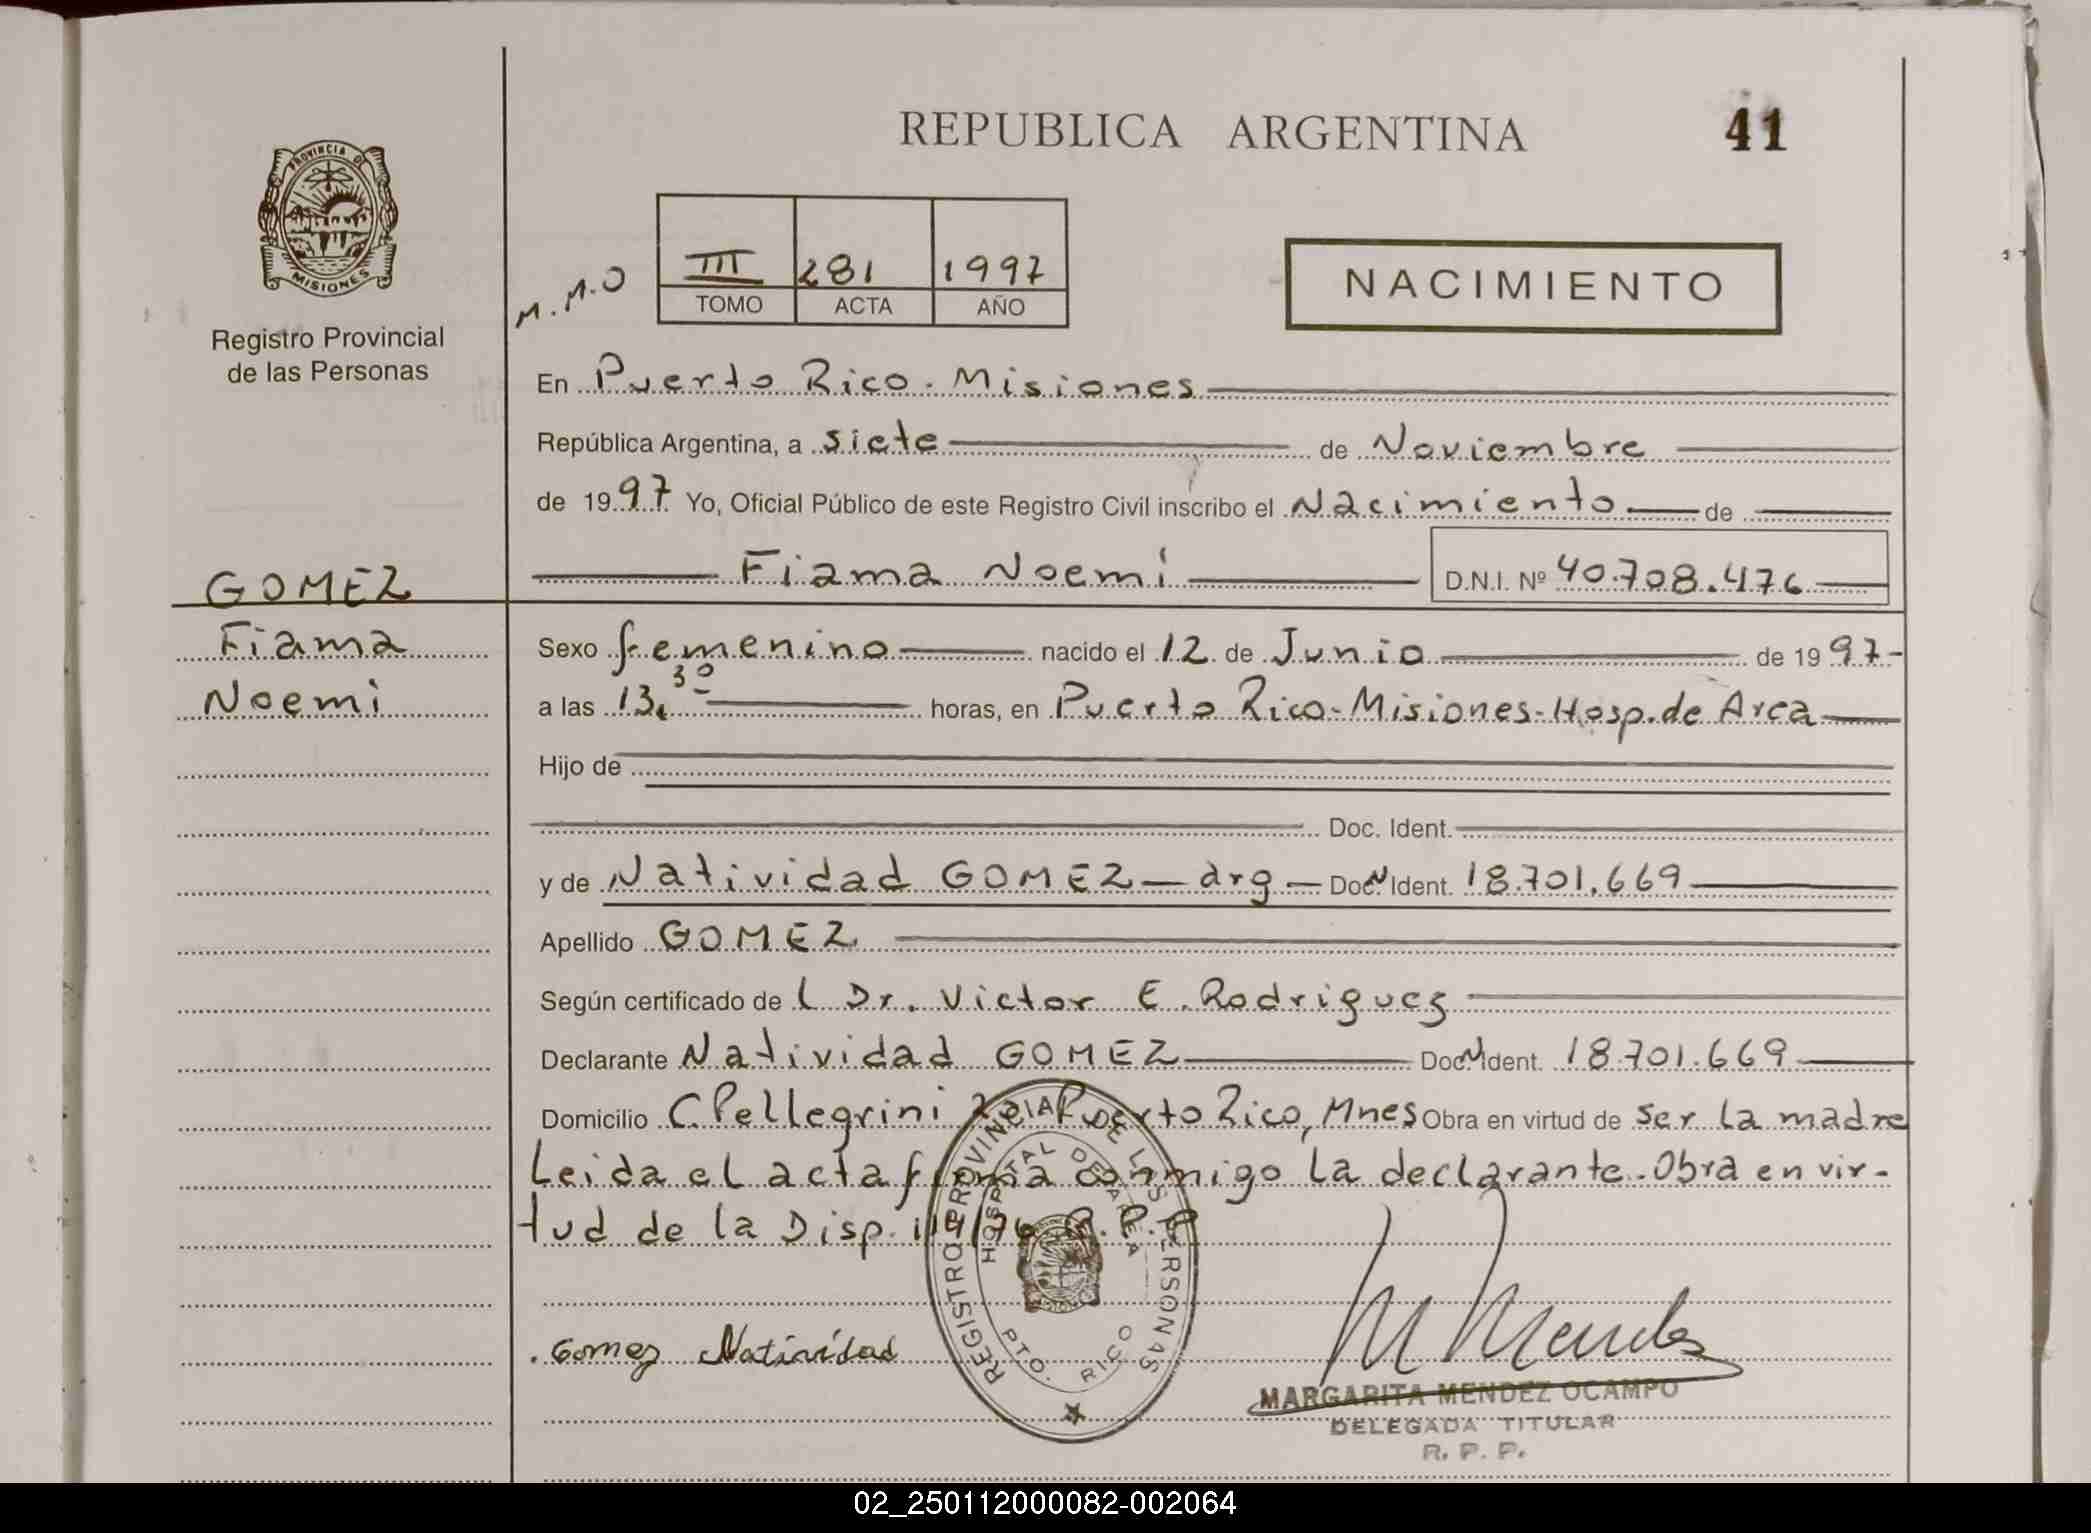 REPUBLICA ARGENTINA
41
PROVINCIA DE
MISIONES
Registro Provincial
de las Personas
M.M.O
III 281 1997
TOMO ACTA AÑO
NACIMIENTO
En Puerto Rico - Misiones
República Argentina, a siete de Noviembre
de 1997 Yo, Oficial Público de este Registro Civil inscribo el Nacimiento de
Fiama Noemí D.N.I. Nº 40.708.476
GOMEZ
Fiama
Noemi
Sexo femenino nacido el 12 de Junio de 1997-
a las 13.30 horas, en Puerto Rico-Misiones-Hosp.de Area
Hijo de
Doc. Ident.
y de Natividad GOMEZ - arg - Doc. Ident. 18.701.669
Apellido GOMEZ
Según certificado de l Dr. Victor E. Rodriguez
Declarante Natividad GOMEZ Doc. Ident. 18.701.669
Domicilio C.Pellegrini Puerto Rico, Mnes Obra en virtud de ser la madre
Leida el acta firma conmigo la declarante. Obra en vir-
tud de la Disp. 114/76 R.P.P
REGISTRO PROVINCIAL DE LAS PERSONAS
HOSPITAL DE AREA
PTO. RICO
Gomez Natividad
M Mendez
MARGARITA MENDEZ OCAMPO
DELEGADA TITULAR
R. P. P.
02_250112000082-002064